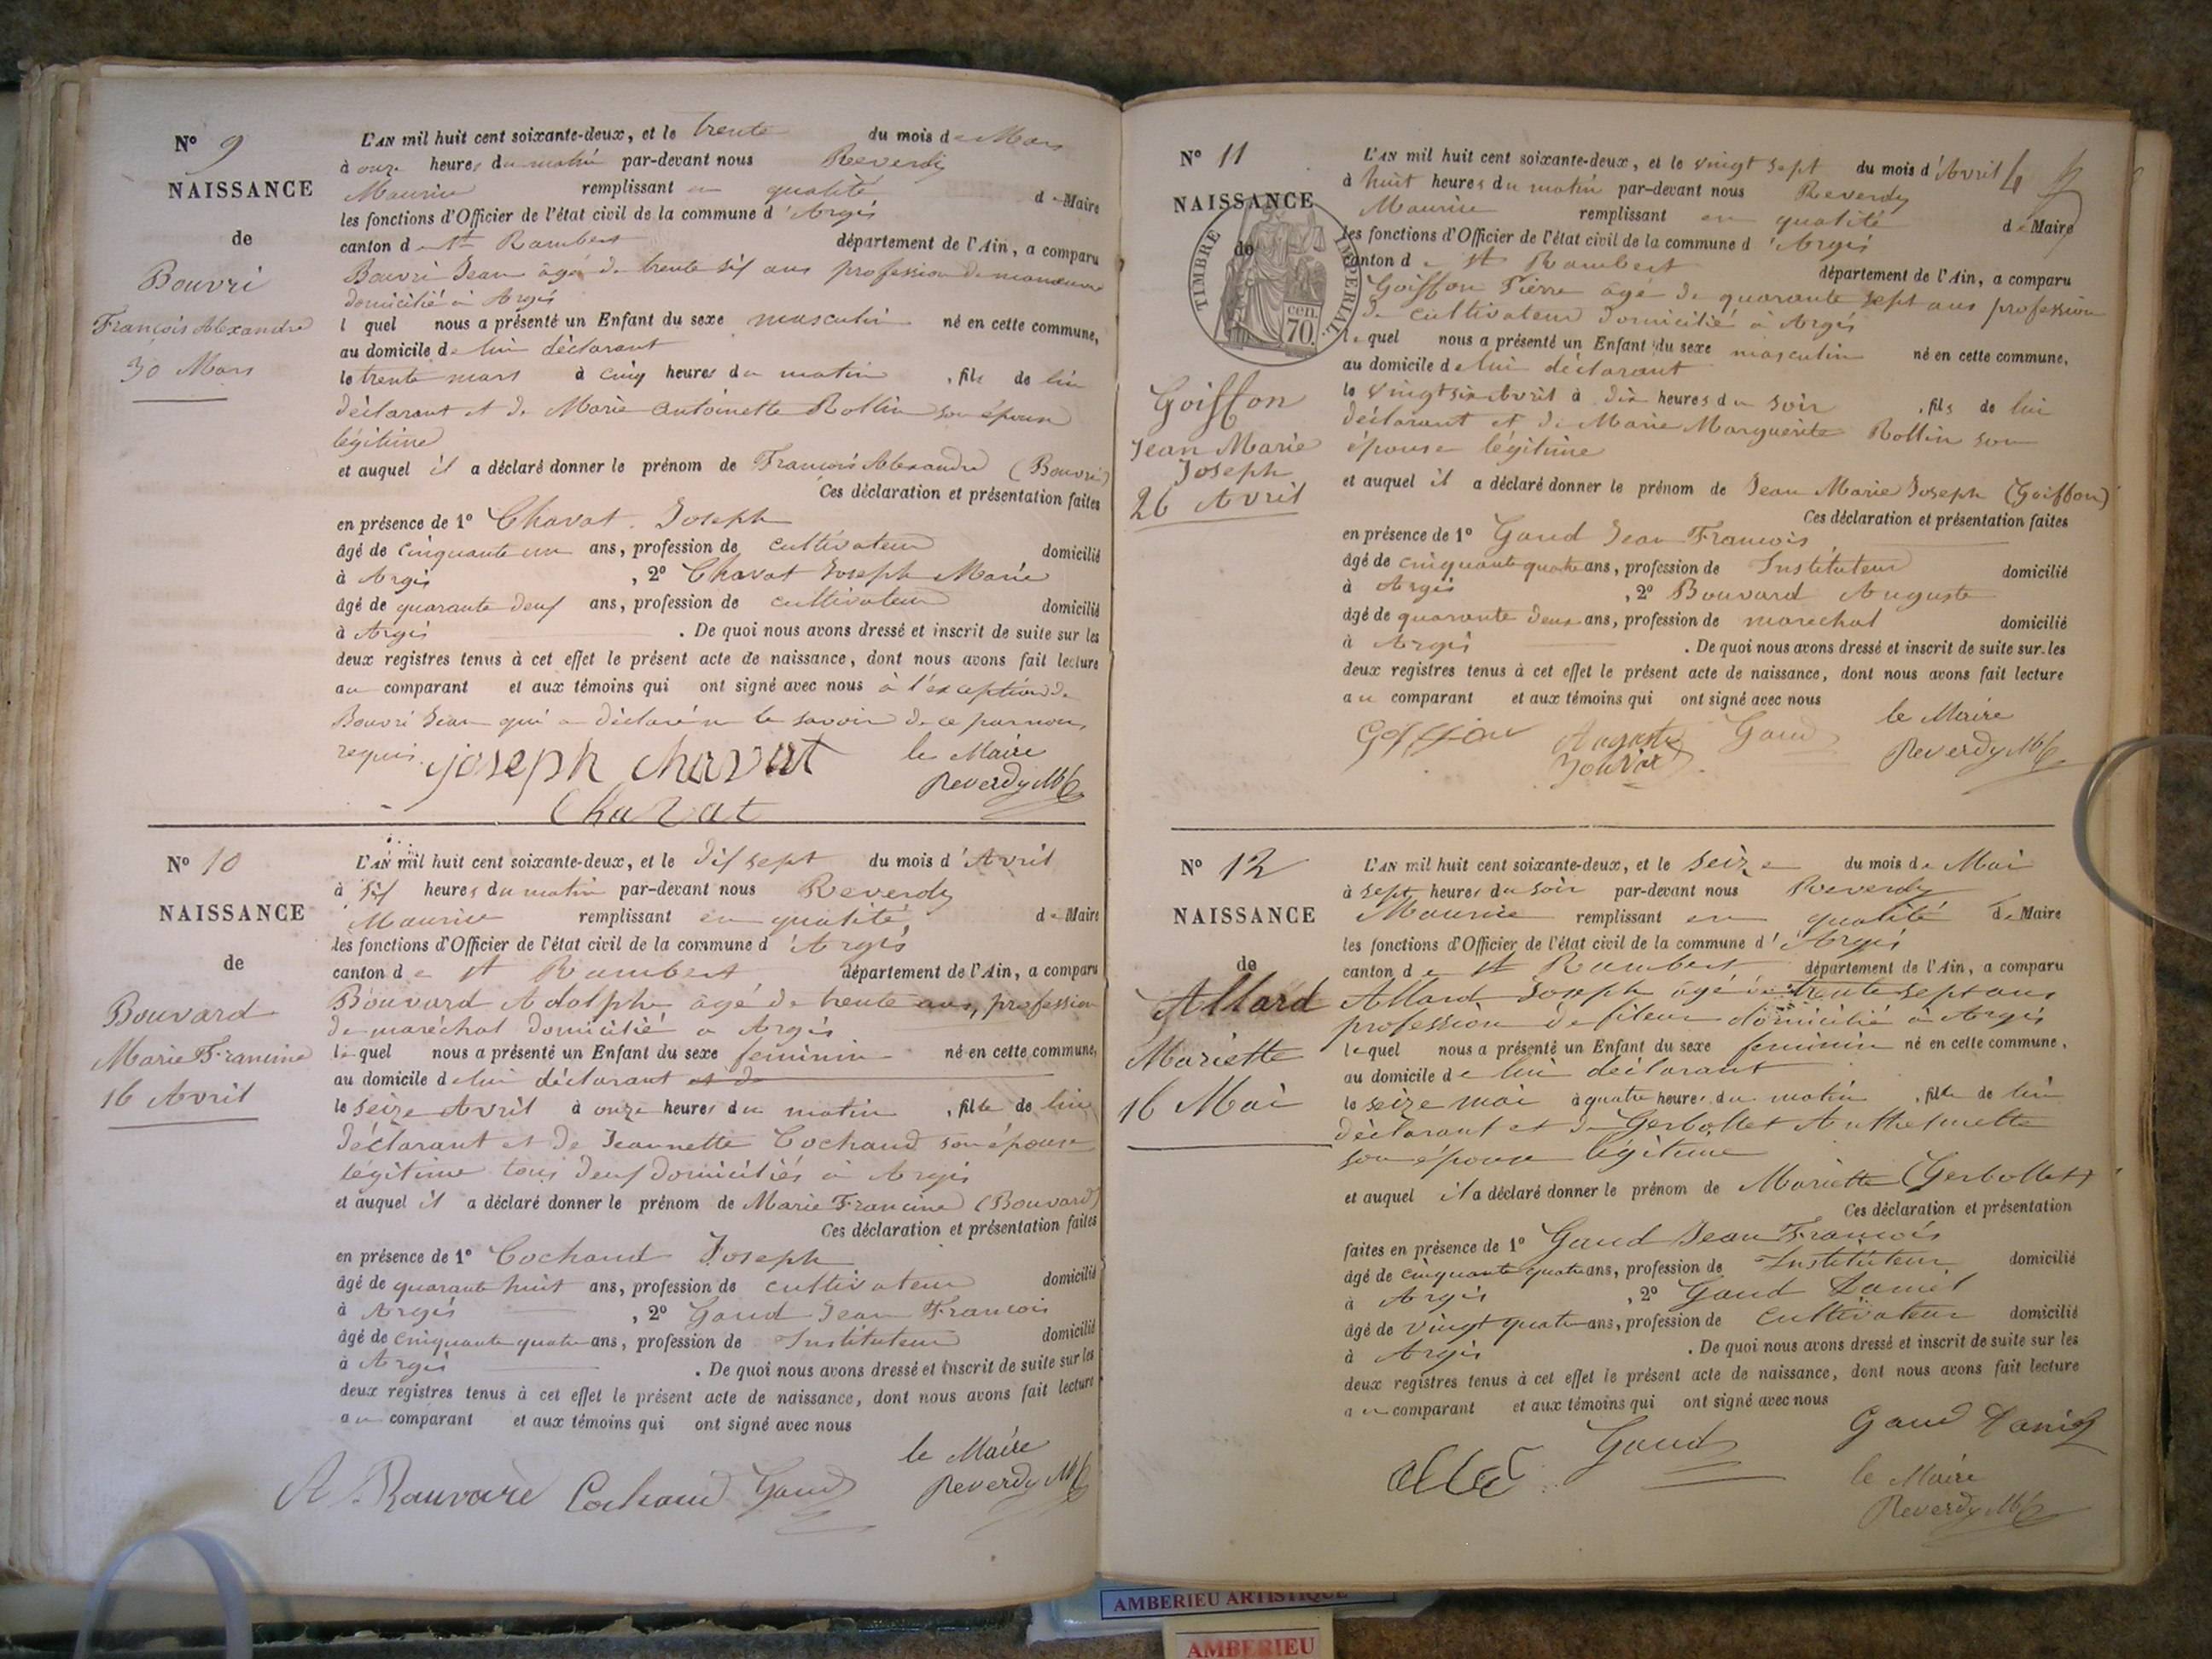 N° 9
NAISSANCE
de
Bouvri
François Alexandre
30 Mars
L'AN mil huit cent soixante-deux, et le trente du mois de Mars
à onze heures du matin par-devant nous Reverdy
Maurice remplissant en qualité de Maire
les fonctions d'Officier de l'état civil de la commune d'Argis
canton de St Rambert département de l'Ain, a comparu
Bouvri Jean âgé de trente six ans profession de manœuvre
domicilié à Argis
lequel nous a présenté un Enfant du sexe masculin né en cette commune,
au domicile de lui déclarant
le trente mars à cinq heures du matin, fils de lui
déclarant et de Marie Antoinette Rollin son épouse
légitime
et auquel il a déclaré donner le prénom de François Alexandre (Bouvri)
Ces déclaration et présentation faites
en présence de 1° Chavat Joseph
âgé de cinquante un ans, profession de cultivateur domicilié
à Argis, 2° Chavat Joseph Marie
âgé de quarante deux ans, profession de cultivateur domicilié
à Argis. De quoi nous avons dressé et inscrit de suite sur les
deux registres tenus à cet effet le présent acte de naissance, dont nous avons fait lecture
au comparant et aux témoins qui ont signé avec nous à l'exception de
Bouvri Jean qui a déclaré ne le savoir de ce par nous
requis.
joseph chavat
le Maire
Reverdy
Chavat
N° 10
NAISSANCE
de
Bouvard
Marie Francine
16 Avril
L'AN mil huit cent soixante-deux, et le dix sept du mois d'Avril
à six heures du matin par-devant nous Reverdy
Maurice remplissant en qualité de Maire
les fonctions d'Officier de l'état civil de la commune d'Argis
canton de St Rambert département de l'Ain, a comparu
Bouvard Adolphe âgé de trente ans, profession
de maréchal domicilié à Argis
lequel nous a présenté un Enfant du sexe feminin né en cette commune,
au domicile de lui déclarant et de
le seize Avril à onze heures du matin, fille de lui
déclarant et de Jeannette Cochaud son épouse
légitime tous deux domiciliés à Argis
et auquel il a déclaré donner le prénom de Marie Francine (Bouvard)
Ces déclaration et présentation faites
en présence de 1° Cochaud Joseph
âgé de quarante huit ans, profession de cultivateur domicilié
à Argis, 2° Gaud Jean François
âgé de cinquante quatre ans, profession de Instituteur domicilié
à Argis. De quoi nous avons dressé et inscrit de suite sur les
deux registres tenus à cet effet le présent acte de naissance, dont nous avons fait lecture
au comparant et aux témoins qui ont signé avec nous
le Maire
A Bouvard Cochaud Gaud Reverdy
N° 11
NAISSANCE
de
TIMBRE IMPERIAL
cen.
70.
Goiffon
Jean Marie
Joseph
26 Avril
L'AN mil huit cent soixante-deux, et le vingt sept du mois d'Avril
à huit heures du matin par-devant nous Reverdy
Maurice remplissant en qualité de Maire
les fonctions d'Officier de l'état civil de la commune d'Argis
canton de St Rambert département de l'Ain, a comparu
Goiffon Pierre âgé de quarante sept ans profession
de cultivateur domicilié à Argis
lequel nous a présenté un Enfant du sexe masculin né en cette commune,
au domicile de lui déclarant
le vingt six Avril à dix heures du soir, fils de lui
déclarant et de Marie Marguerite Rollin son
épouse légitime
et auquel il a déclaré donner le prénom de Jean Marie Joseph (Goiffon)
Ces déclaration et présentation faites
en présence de 1° Gaud Jean François
âgé de cinquante quatre ans, profession de Instituteur domicilié
à Argis, 2° Bouvard Auguste
âgé de quarante deux ans, profession de marechal domicilié
à Argis. De quoi nous avons dressé et inscrit de suite sur les
deux registres tenus à cet effet le présent acte de naissance, dont nous avons fait lecture
au comparant et aux témoins qui ont signé avec nous
le Maire
Goiffon Auguste Gaud Reverdy
N° 12
NAISSANCE
de
Allard
Mariette
16 Mai
L'AN mil huit cent soixante-deux, et le seize du mois de Mai
à sept heures du soir par-devant nous Reverdy
Maurice remplissant en qualité de Maire
les fonctions d'Officier de l'état civil de la commune d'Argis
canton de St Rambert département de l'Ain, a comparu
Allard Joseph âgé de trente sept ans
profession de fileur domicilié à Argis
lequel nous a présenté un Enfant du sexe feminin né en cette commune,
au domicile de lui déclarant
le seize mai à quatre heures du matin, fille de lui
déclarant et de Gerbollet Anthelmette
son épouse légitime
et auquel il a déclaré donner le prénom de Mariette (Gerbollet)
Ces déclaration et présentation
faites en présence de 1° Gaud Jean François
âgé de cinquante quatre ans, profession de Instituteur domicilié
à Argis, 2° Gaud Daniel
âgé de vingt quatre ans, profession de cultivateur domicilié
à Argis. De quoi nous avons dressé et inscrit de suite sur les
deux registres tenus à cet effet le présent acte de naissance, dont nous avons fait lecture
au comparant et aux témoins qui ont signé avec nous
Gaud Gaud Daniel
le Maire
Reverdy
AMBERIEU ARTISTIQUE
AMBERIEU